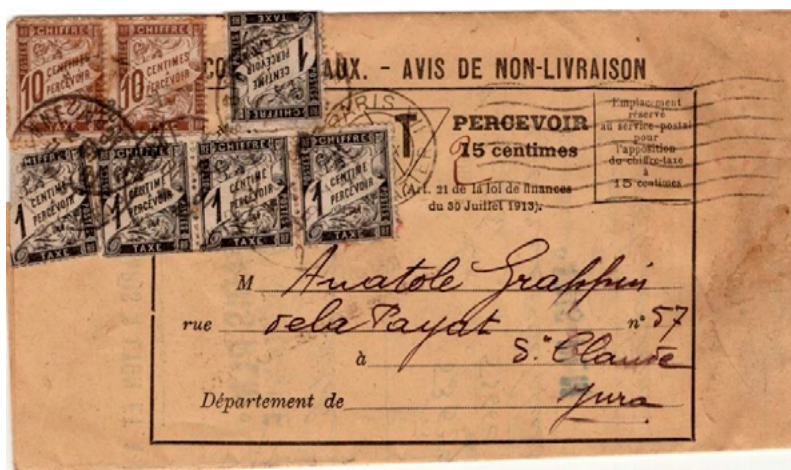 CHIFFRE
10 CENTIMES
PERCEVOIR
TAXE
CHIFFRE
10 CENTIMES
PERCEVOIR
TAXE
TAXE
1 CENTIME
PERCEVOIR
CHIFFRE
AUX. - AVIS DE NON-LIVRAISON
PARIS VII
T PERCEVOIR
15 centimes
(Art. 21 de la loi de finances
du 30 Juillet 1913).
Emplacement
réservé
au service-postal
pour
l'apposition
du chiffre-taxe
à
15 centimes
1 CENTIME
PERCEVOIR
TAXE
1 CENTIME
PERCEVOIR
TAXE
1 CENTIME
PERCEVOIR
POSTES
TAXE
1 CENTIME
PERCEVOIR
POSTES
TAXE
M Anatole Grappin
rue de la Payat n° 57
à St Claude
Département de Jura